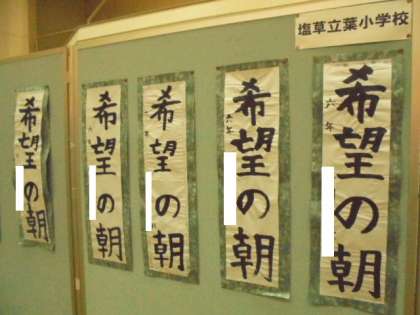 塩草立葉小学校
希望の朝
六年
希望の朝
六年
希望の朝
希望の朝
希望の朝